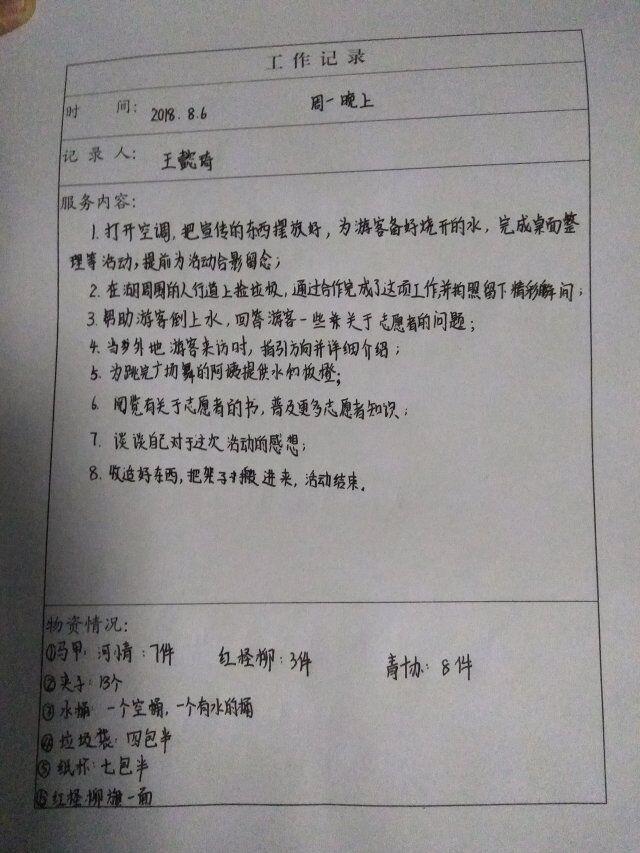 工作记录
时 间： 2018.8.6 周一晚上
记录人： 王懿琦
服务内容：
1. 打开空调，把宣传的东西摆放好，为游客备好烧开的水，完成桌面整
理等活动，提前为活动合影留念；
2. 在湖周围的人行道上捡垃圾，通过合作完成了这项工作并拍照留下精彩瞬间；
3. 帮助游客倒上水，回答游客一些关于志愿者的问题；
4. 当外地游客来访时，指引方向并详细介绍；
5. 为跳完广场舞的阿姨提供水和板凳；
6. 阅览有关于志愿者的书，普及更多志愿者知识；
7. 谈谈自己对于这次活动的感想；
8. 收拾好东西，把架子搬进来，活动结束。
物资情况：
①马甲：河情：7件 红柽柳：3件 青协：8件
②夹子：13个
③水桶：一个空桶，一个有水的桶
④垃圾袋：四包半
⑤纸杯：七包半
⑥红柽柳旗一面